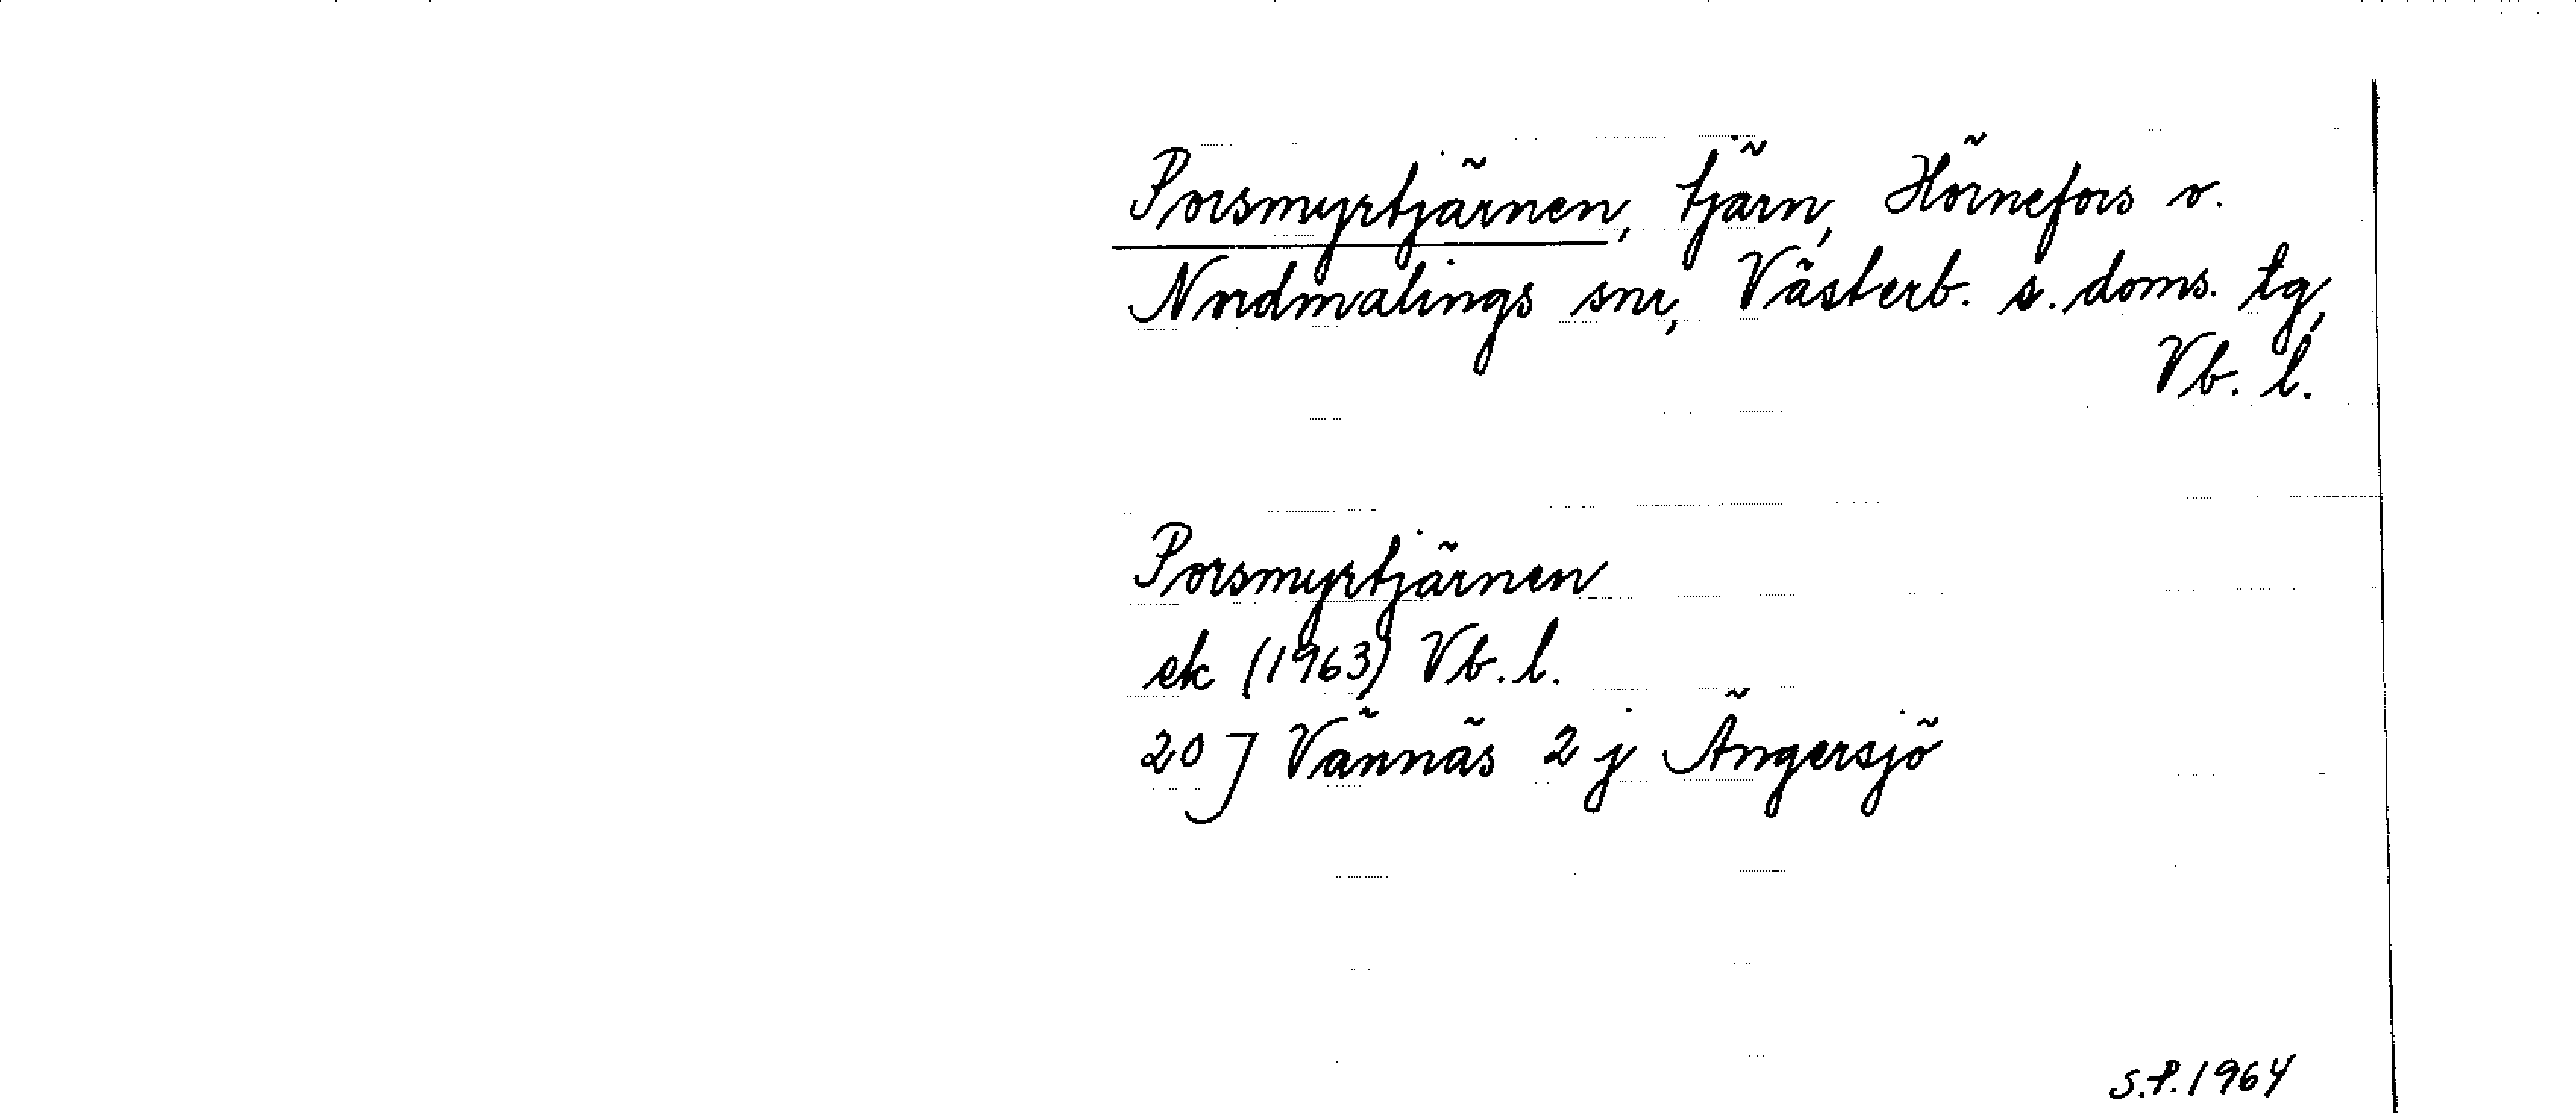 Porsmyrtjärnen, tjärn, Hörnefors o.
Nordmalings snr, Västerb. s. doms. tg,
Vb. l.
Porsmyrtjärnen
ek (1963) Vb. l.
20 J Vännäs 2 j Ängersjö
S.P. 1964